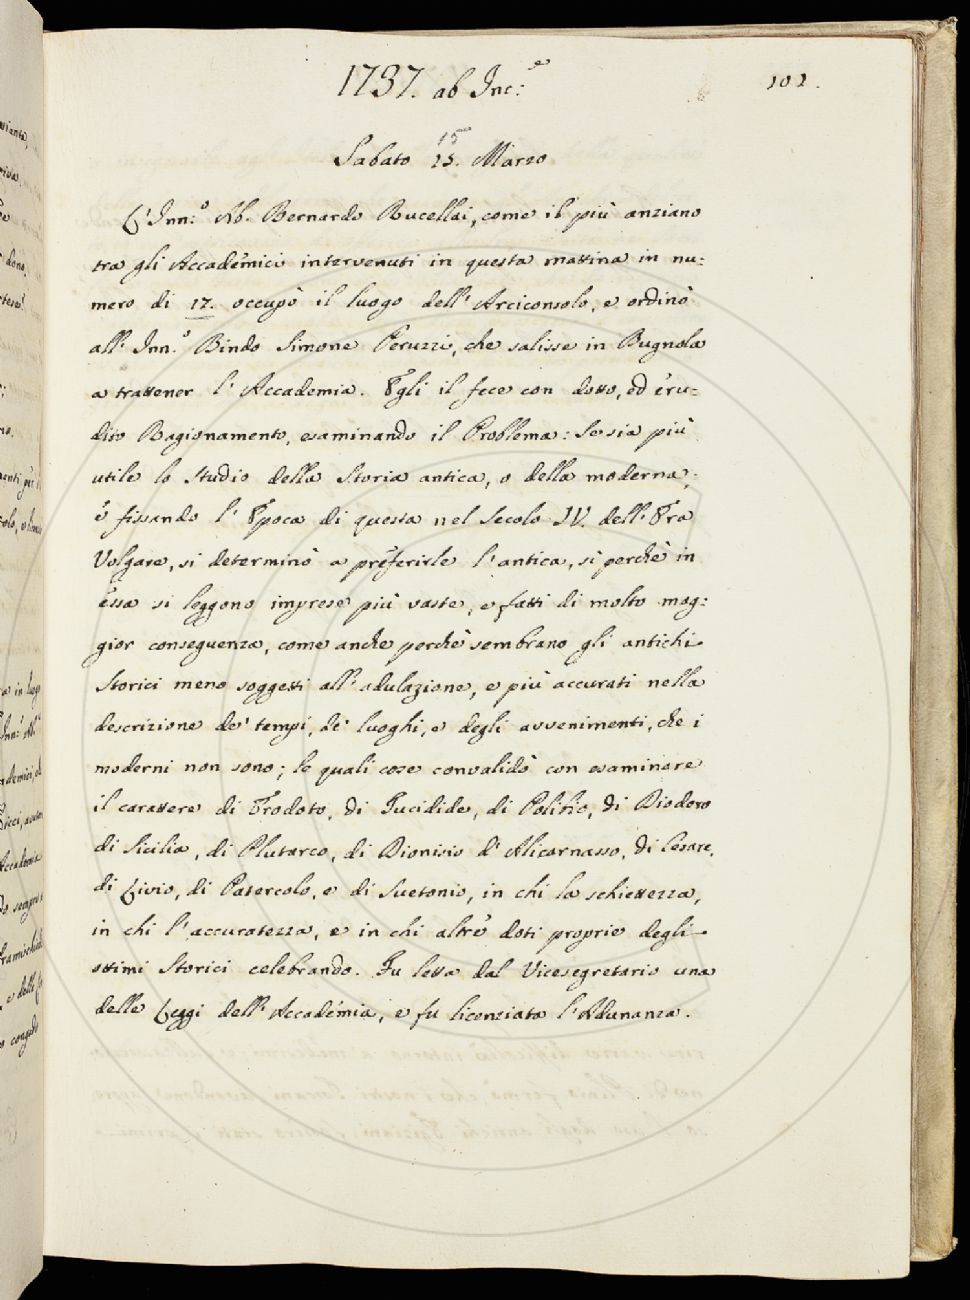 1737. ab Inc:e
101.
15
Sabato 15. Marzo
L'Inn:o Ab. Bernardo Rucellai, come il più anziano
tra gli Accademici intervenuti in questa mattina in nu:
mero di 17. occupò il luogo dell'Arciconsolo, e ordinò
all'Inn:o Bindo Simone Peruzzi, che salisse in Bugnola
a trattener l'Accademia. Egli il fece con dotto, ed eru:
dito Ragionamento, esaminando il Problema: Se sia più
utile lo studio della Storia antica, o della moderna;
e fissando l'Epoca di questa nel Secolo IV. dell'Era
Volgare, si determinò a preferirle l'antica, sì perchè in
essa si leggono imprese più vaste, e fatti di molto mag:
gior conseguenza, come anche perchè sembrano gli antichi
Storici meno soggetti all'adulazione, e più accurati nella
descrizione de' tempi, de' luoghi, e degli avvenimenti, che i
moderni non sono; le quali cose convalidò con esaminare
il carattere di Erodoto, di Tucidide, di Polibio, di Diodoro
di Sicilia, di Plutarco, di Dionisio d'Alicarnasso, di Cesare,
di Livio, di Patercolo, e di Suetonio, in chi la schiettezza,
in chi l'accuratezza, e in chi altre doti proprie degli
ottimi Storici celebrando. Fu letta dal Vicesegretario una
delle Leggi dell'Accademia, e fu licenziata l'Adunanza.